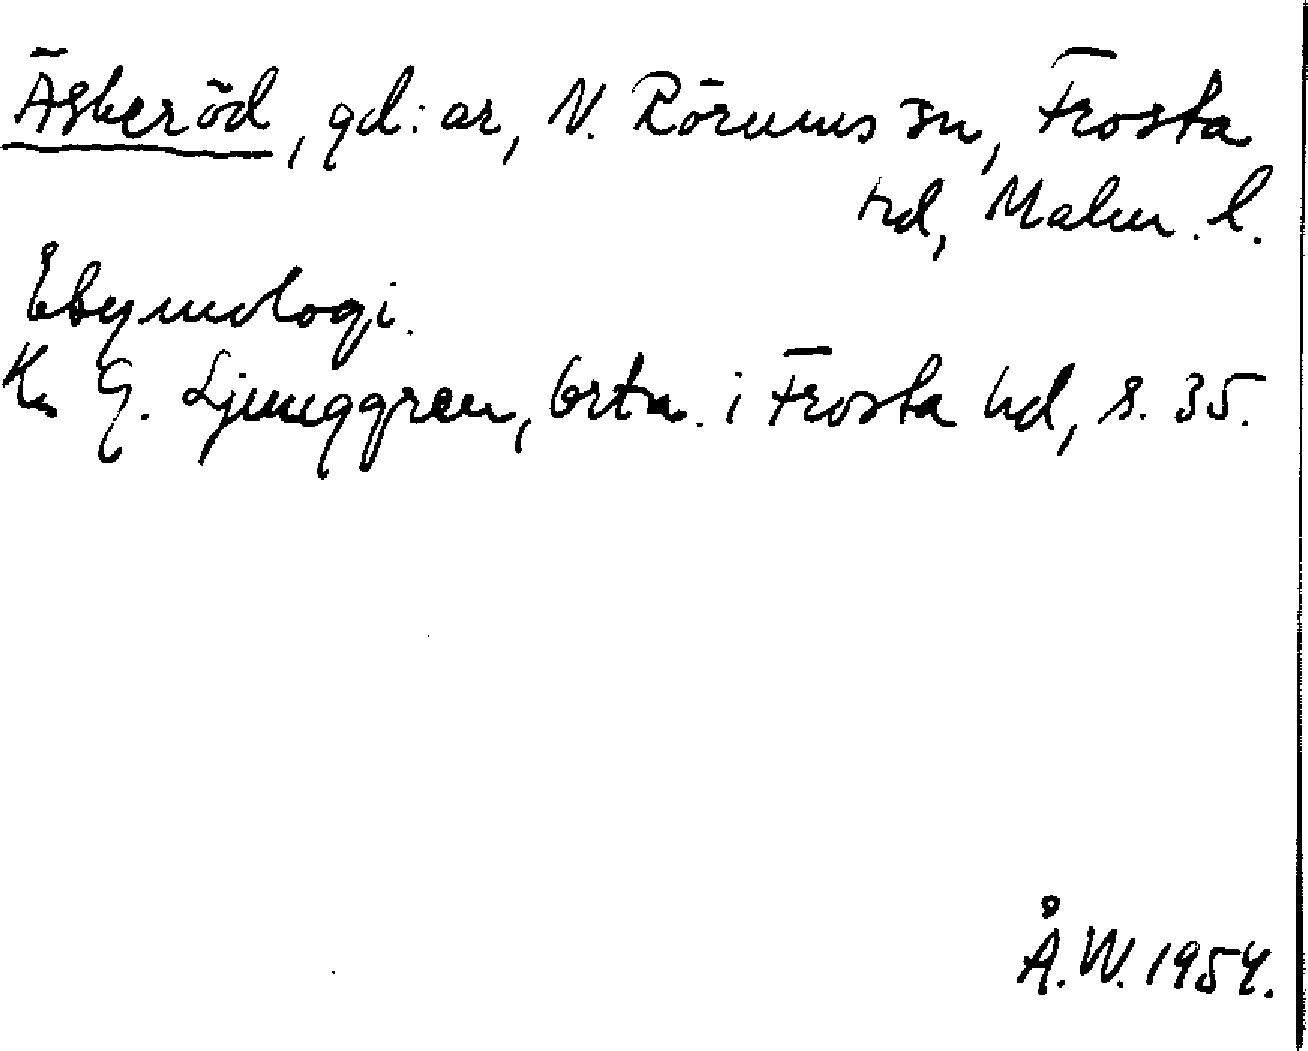 Äsberöd, gd:ar, N. Rörums sn, Frosta
hd, Malm. l.
Etymologi.
K. G. Ljunggren, Ortn. i Frosta hd, s. 35.
Å.W. 1954.